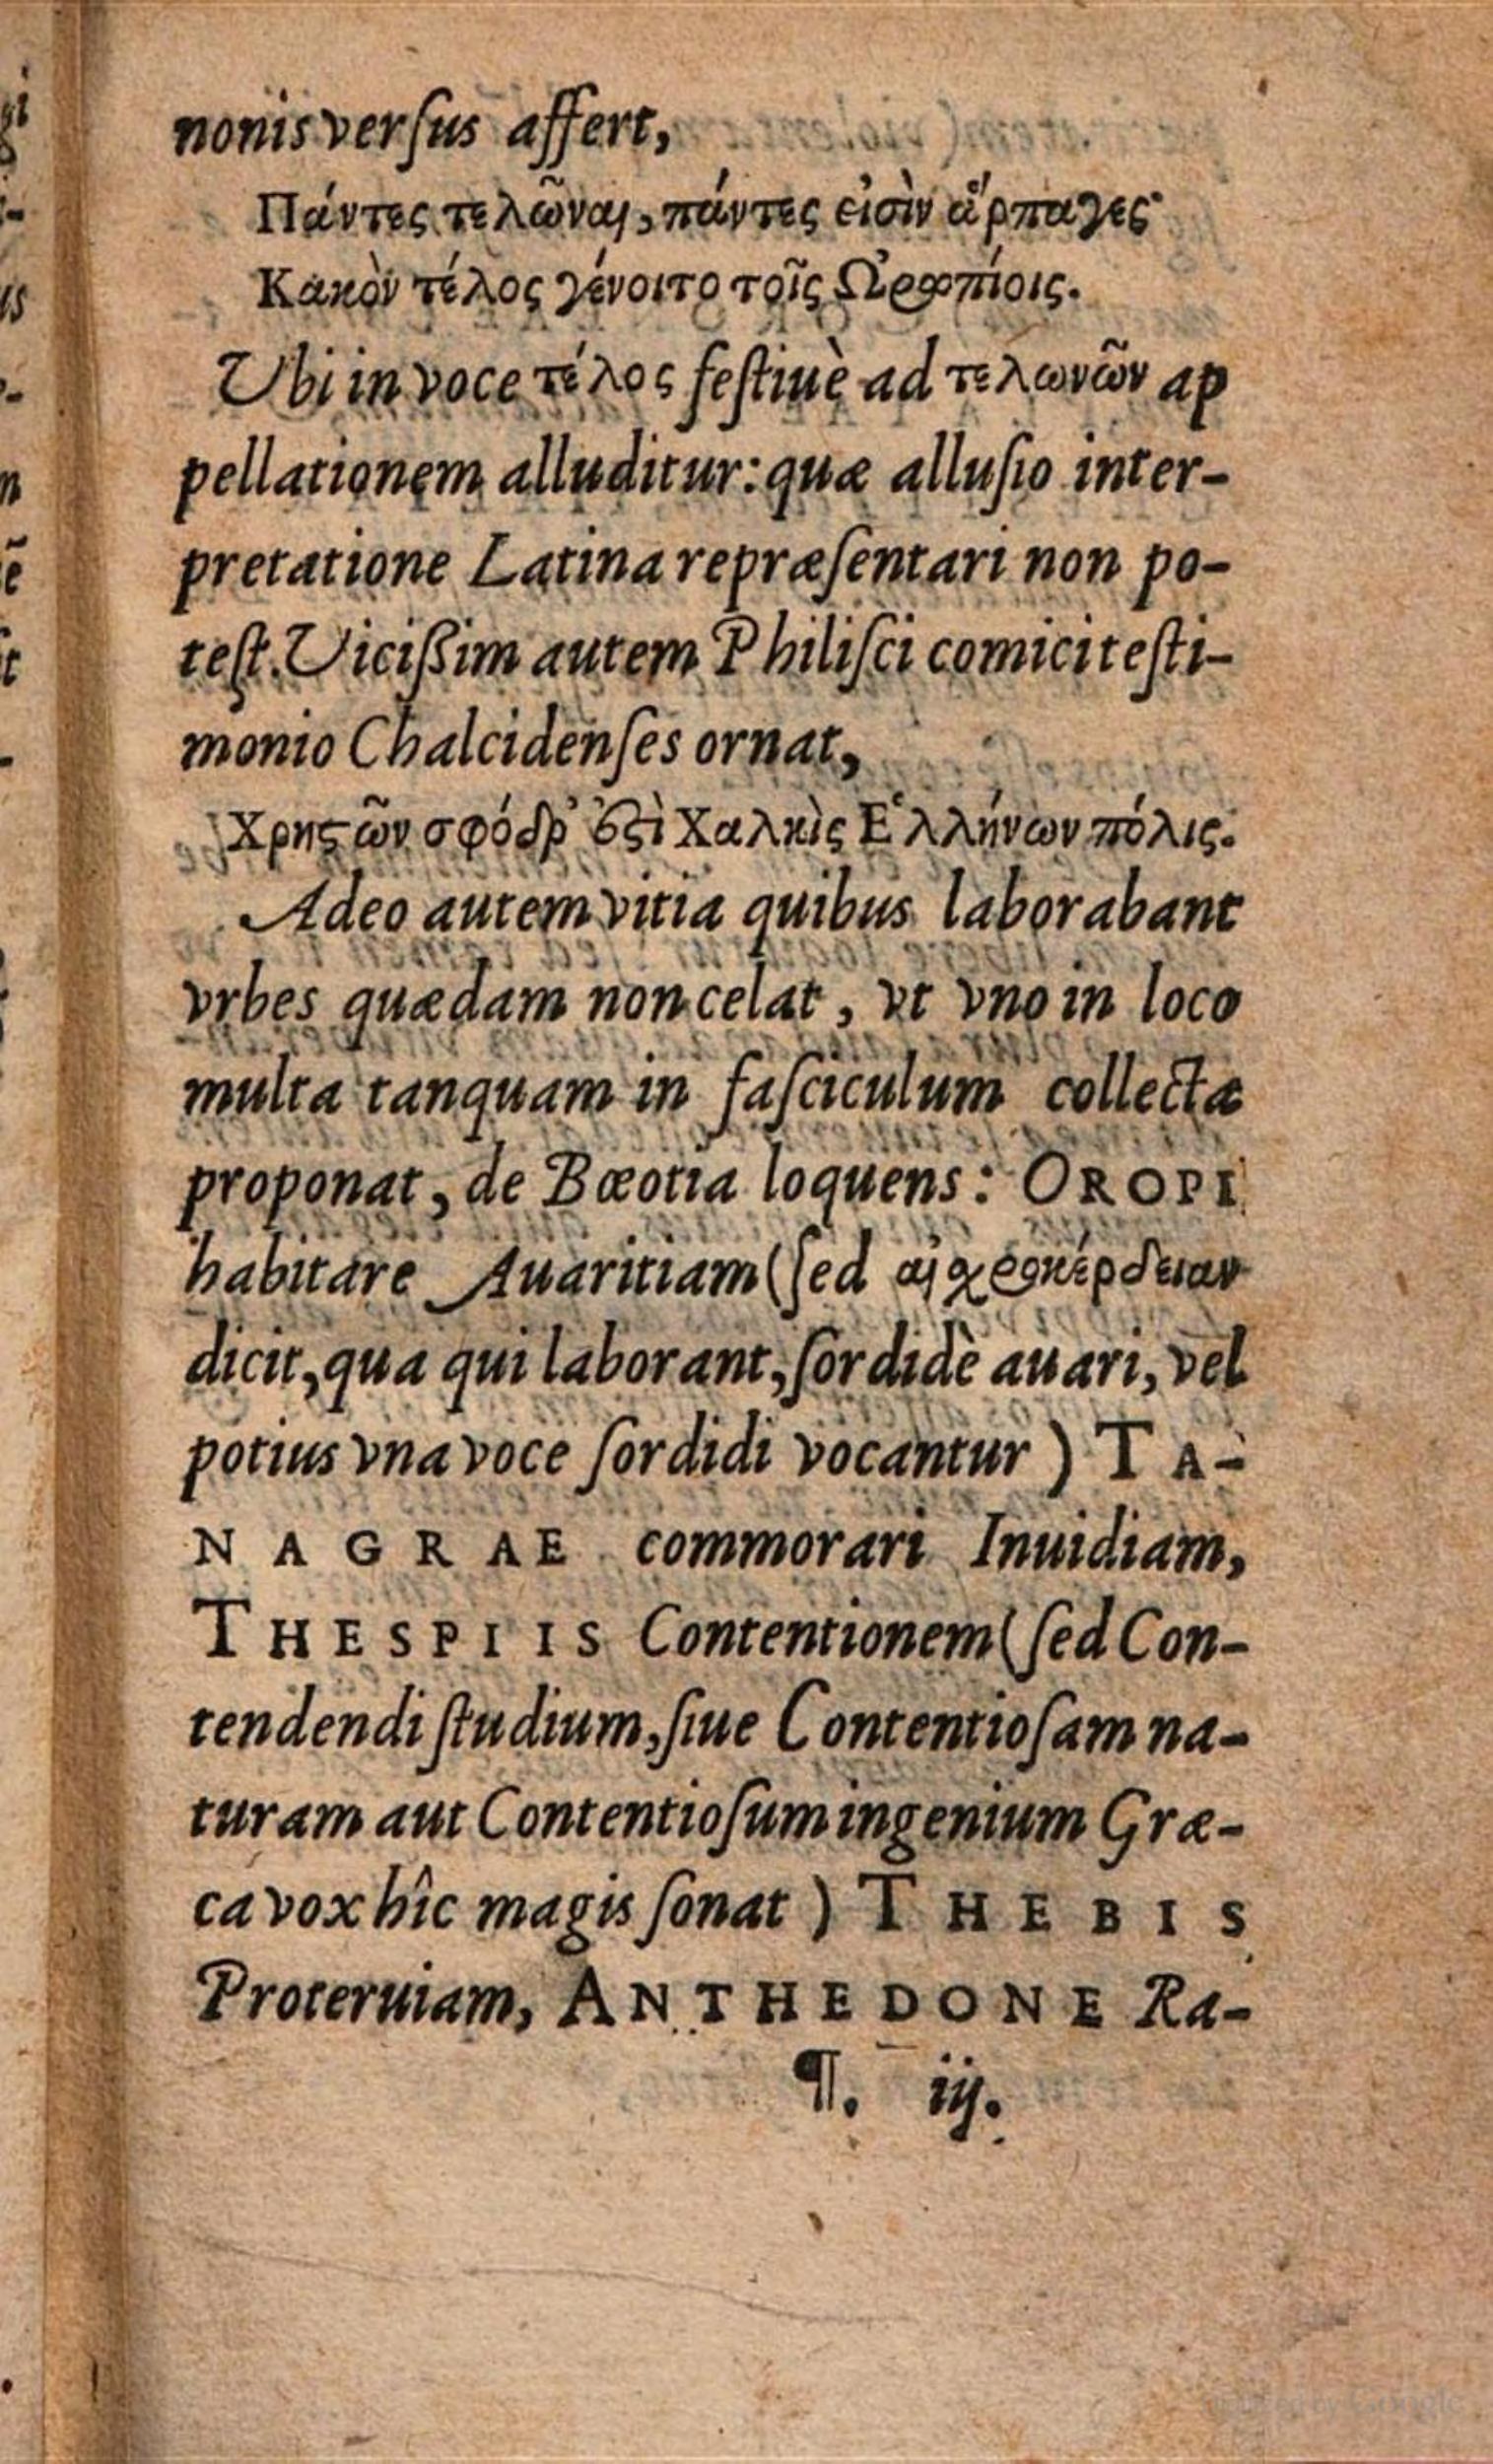 nonis verſus affert,
Πάντες τελῶναι, πάντες εἰσὶν ἅρπαγες·
Κακὸν τέλος γένοιτο τοῖς Ὠρωπίοις.
Ubi in voce τέλος feſtiuè ad τελωνῶν ap
pellationem alluditur: quæ alluſio inter-
pretatione Latina repræſentari non po-
teſt. Uicißim autem Philiſci comici teſti-
monio Chalcidenſes ornat,
Χρηϛῶν σφόδρ' ἐϛὶ Χαλκὶς Ἑλλήνων πόλις.
Adeo autem vitia quibus laborabant
vrbes quædam non celat, vt vno in loco
multa tanquam in faſciculum collecta
proponat, de Bœotia loquens: OROPI
habitare Auaritiam (ſed αἰχροκέρδειαν
dicit, qua qui laborant, ſordidè auari, vel
potius vna voce ſordidi vocantur) TA-
NAGRAE commorari Inuidiam,
THESPIIS Contentionem (ſed Con-
tendendi ſtudium, ſiue Contentioſam na-
turam aut Contentioſum ingenium Græ-
ca vox hîc magis ſonat) THEBIS
Proteruiam, ANTHEDONE Ra-
¶. iij.